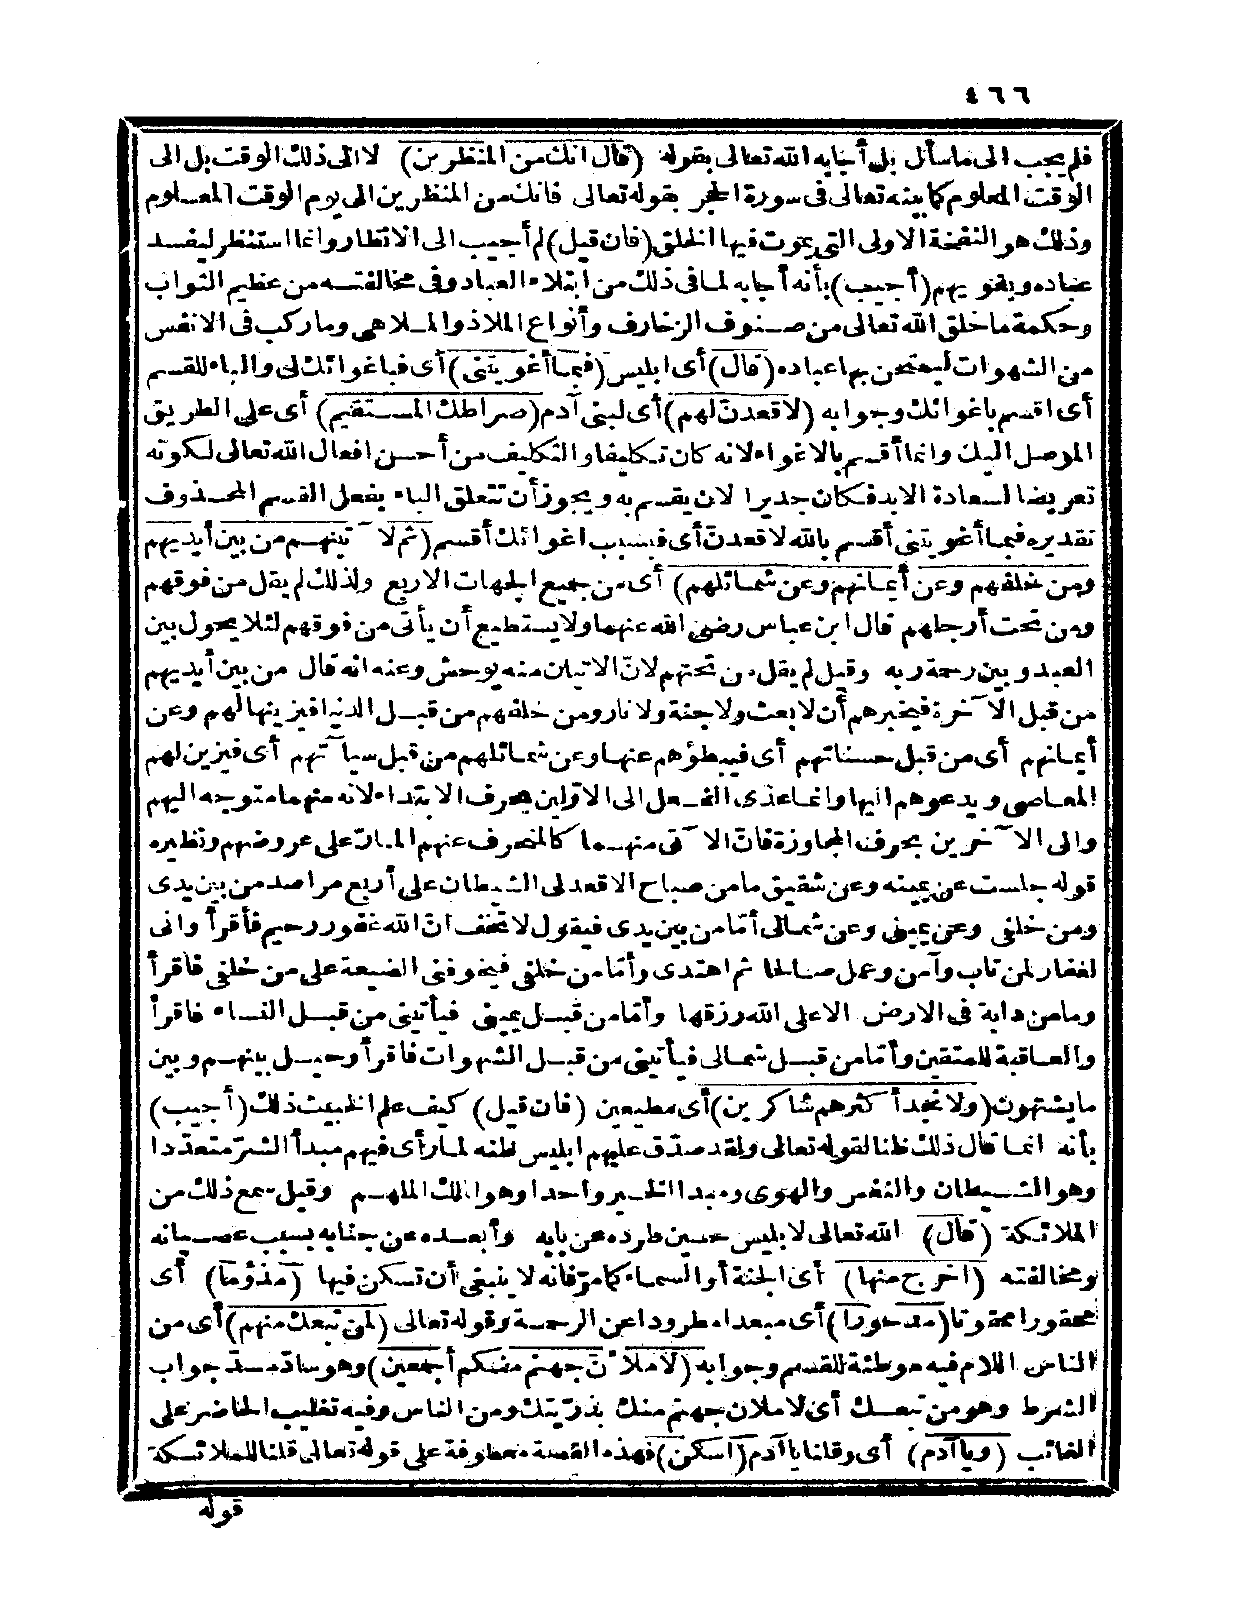 ٤٦٦
فلم يجب الى ما سأل بل أجابه الله تعالى بقوله (قال انك من المنظرين) لا الى ذلك الوقت بل الى
الوقت المعلوم كما بينه تعالى فى سورة الحجر بقوله تعالى فانك من المنظرين الى يوم الوقت المعلوم
وذلك هو النفخة الاولى التى يموت فيها الخلق (فان قيل) لم أجيب الى الانظار وانما استنظر ليفسد
عباده ويغويهم (أجيب) بأنه أجابه لما فى ذلك من ابتلاء العباد وفى مخالفته من عظيم الثواب
وحكمة ما خلق الله تعالى من صنوف الزخارف وأنواع الملاذ والملاهى وما ركب فى الانفس
من الشهوات ليمتحن بها عباده (قال) أى ابليس (فبما أغويتنى) أى فباغوائك لى والباء للقسم
أى اقسم باغوائك وجوابه (لاقعدنّ لهم) أى لبنى آدم (صراطك المستقيم) أى على الطريق
الموصل اليك وانما أقسم بالاغواء لانه كان تكليفا والتكليف من أحسن افعال الله تعالى لكونه
تعريضا لسعادة الابد فكان جديرا لان يقسم به ويجوز أن تتعلق الباء بفعل القسم المحذوف
تقديره فبما أغويتنى أقسم بالله لاقعدنّ أى فبسبب اغوائك أقسم (ثم لا آتينهم من بين أيديهم
ومن خلفهم وعن أيمانهم وعن شمائلهم) أى من جميع الجهات الاربع ولذلك لم يقل من فوقهم
ومن تحت أرجلهم قال ابن عباس رضى الله عنهما ولا يستطيع أن يأتى من فوقهم لئلا يحول بين
العبد وبين رحمة ربه وقيل لم يقل من تحتهم لانّ الاتيان منه يوحش وعنه انه قال من بين أيديهم
من قبل الآخرة فيخبرهم أن لا بعث ولا جنة ولا نار ومن خلفهم من قبل الدنيا فيزينها لهم وعن
أيمانهم أى من قبل حسناتهم أى فيبطؤهم عنها وعن شمائلهم من قبل سيآتهم أى فيزين لهم
المعاصى ويدعوهم اليها وانما عدى الفعل الى الاوّلين بحرف الابتداء لانه منهما متوجه اليهم
والى الآخرين بحرف المجاوزة فانّ الآتى منهما كالمنحرف عنهم المارّ على عروضهم ونظيره
قوله جلست عن يمينه وعن شقيق ما من صباح الا قعد لى الشيطان على أربع مراصد من بين يدى
ومن خلفى وعن يمينى وعن شمالى أمّا من بين يدى فيقول لا تخف انّ الله غفور رحيم فأقرأ وانى
لغفار لمن تاب وآمن وعمل صالحا ثم اهتدى وأمّا من خلفى فيخوفنى الضيعة على من خلفى فاقرأ
وما من دابة فى الارض الا على الله رزقها وأمّا من قبل يمينى فيأتينى من قبل النساء فاقرأ
والعاقبة للمتقين وأمّا من قبل شمالى فيأتينى من قبل الشهوات فاقرأ وحيل بينهم وبين
ما يشتهون (ولا تجد أكثرهم شاكرين) أى مطيعين (فان قيل) كيف علم الخبيث ذلك (أجيب)
بأنه انما قال ذلك ظنا لقوله تعالى ولقد صدّق عليهم ابليس ظنه لما رأى فيهم مبدأ الشرّ متعدّدا
وهو الشيطان والنفس والهوى ومبدأ الخير واحدا وهو الملك الملهم وقيل سمع ذلك من
الملائكة (قال) الله تعالى لابليس حين طرده عن بابه وأبعده عن جنابه بسبب عصيانه
ومخالفته (اخرج منها) أى الجنة أو السماء كما مرّ فانه لا ينبغى أن تسكن فيها (مذؤما) أى
محقورا ممقوتا (مدحورا) أى مبعدا مطرودا عن الرحمة وقوله تعالى (لمن تبعك منهم) أى من
الناس اللام فيه موطئة للقسم وجوابه (لاملأنّ جهنم منكم أجمعين) وهو سادّ مسدّ جواب
الشرط وهو من تبعك أى لاملان جهنم منك بذرّيتك ومن الناس وفيه تغليب الحاضر على
الغائب (ويا آدم) أى وقلنا يا آدم (اسكن) فهذه القصة معطوفة على قوله تعالى قلنا للملائكة
قوله